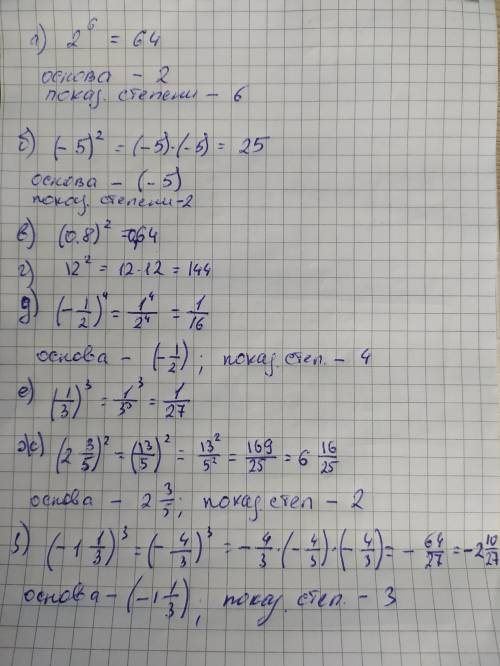 а) 2⁶ = 64
основа - 2
показ. степени - 6
б) (-5)² = (-5)·(-5) = 25
основа - (-5)
показ. степени - 2
в) (0.8)² = 0,64
г) 12² = 12·12 = 144
д) (-1/2)⁴ = 1⁴/2⁴ = 1/16
основа - (-1/2); показ. степ. - 4
е) (1/3)³ = 1³/3³ = 1/27
ж) (2 3/5)² = (13/5)² = 13²/5² = 169/25 = 6 16/25
основа - 2 3/5; показ. степ - 2
з) (-1 1/3)³ = (-4/3)³ = -4/3·(-4/3)·(-4/3) = -64/27 = -2 10/27
основа - (-1 1/3); показ. степ. - 3